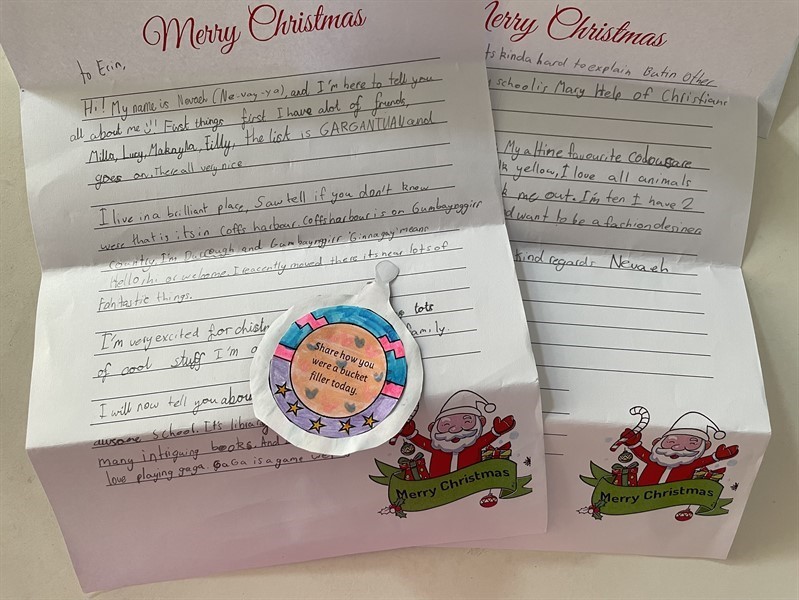 Merry Christmas
to Erin,
Hi! My name is Nevaeh (Ne-vay-ya), and I'm here to tell you
all about me First things first I have alot of friends,
Milla, Lucy, Makayla, Tilly, the list is GARGANTUAN and
goes on. There all very nice
I live in a brilliant place, Sawtell if you don't know
were that is its in Coffs harbour. Coffs harbour is on Gumbaynggirr
country. I'm and Gumbaynggirr 'Ginnagay' means
Hello, hi or welcome. I reacently moved there its near lots of
Fantastic things.
I'm very excited for
of cool stuff I'm
I will now tell you about
awsome school. It's
many intriguing books. And
love playing gaga. GaGa is a game
Merry Christmas
Share how you
were a bucket
filler today.
tots
family.
Merry Christmas
ts kinda hard to explain But in other
school is Mary Help of Christians
My altime favourite colours are
yellow, I love all animals
me out. I'm ten I have 2
want to be a fashion desiner
kind regards Nevaeh
Merry Christmas